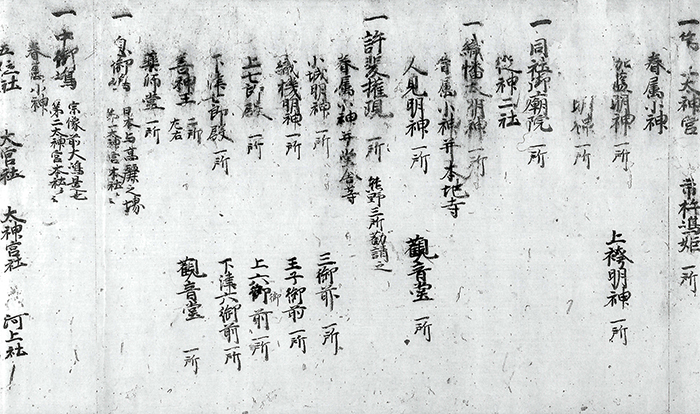 大神宮 市杵嶋姫 一所
眷属小神
明神 一所 上袴明神 一所
明神 一所
一 同社御廟院 一所
神二社
一 織幡大明神 一所
眷属小神并本地寺
人見明神 一所 觀音堂 一所
一 許斐権現 一所 熊野三所勧請之
眷属小神并堂舎等
小城明神 一所 三御前 一所
織機明神 一所 王子御前 一所
上七郎殿 一所 上六御前 一所
下津七郎殿 一所 下津六御前 一所
善神王 二所 左右 觀音堂 一所
薬師堂 一所
一 御嶋 日本与高麗之堺
第一大神宮本社
一 中御嶋 宗像
第二大神宮本社
眷属小神
五位社 大宮社 太神宮社 河上社